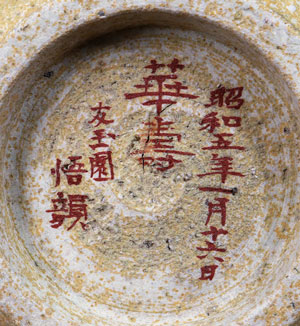 昭和五年一月十六日
華
友玉園
悟